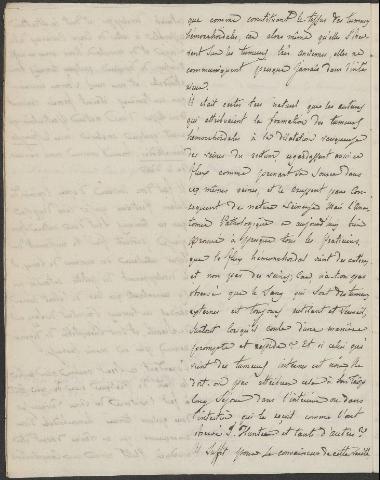 que comme constituant le tissu des tumeurs
hemorrhoidales, car alors même qu'elles s'trou
vent sur les tumeurs très anciennes elles ne
communiquent presque jamais dans l'inté
rieur.
Il était certes très naturel que les auteurs
qui attribuaient la formation des tumeurs
hemorrhoidales à la dilatation variqueuse
des veines du rectum regardassent aussi ce
flux comme prenant sa source dans
ces mêmes veines, et le crussent par con
sequent de nature veineuse mais l'Ana
tomie Pathologique a aujourd'hui bien
prouvé à presque tous les praticiens,
que le flux hemorrhoidal vient des artères
et non pas des veines; Car n'a-t-on pas
observé que le Sang qui sort des tumeurs
externes est toujours rutilant et vermeil,
surtout lorsqu'il coule d'une manière
prompte et rapide? Et si celui qui
vient des tumeurs internes est noir, ne
doit-on pas attribuer cela à son trop
long Séjour dans l'intérieur ou dans
l'intestin qui le reçoit comme l'ont
observé J. Hunter et tant d'autres?
Il suffit pour se convaincre de cette vérité